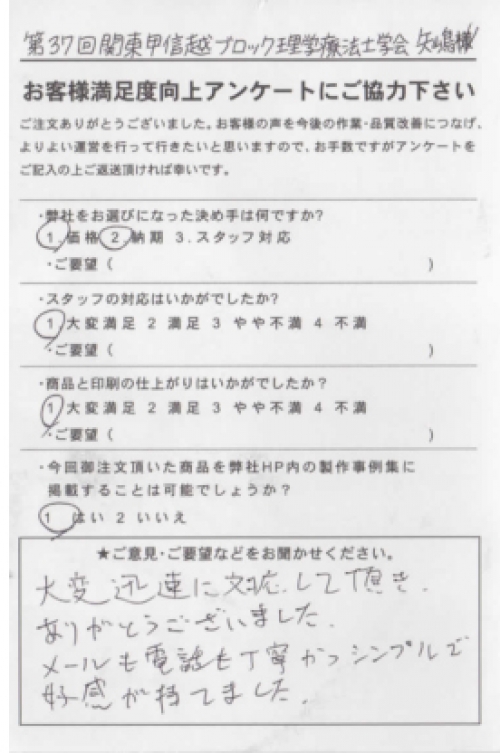 第37回関東甲信越ブロック理学療法士学会 矢嶋様
お客様満足度向上アンケートにご協力下さい
ご注文ありがとうございました。お客様の声を今後の作業・品質改善につなげ、
よりよい運営を行って行きたいと思いますので、お手数ですがアンケートを
ご記入の上ご返送頂ければ幸いです。
・弊社をお選びになった決め手は何ですか?
1.価格 2.納期 3.スタッフ対応
・ご要望 ( )
・スタッフの対応はいかがでしたか?
1 大変満足 2 満足 3 やや不満 4 不満
・ご要望 ( )
・商品と印刷の仕上がりはいかがでしたか?
1 大変満足 2 満足 3 やや不満 4 不満
・ご要望 ( )
・今回御注文頂いた商品を弊社HP内の製作事例集に
掲載することは可能でしょうか?
1 はい 2 いいえ
★ご意見・ご要望などをお聞かせください。
大変迅速に対応して頂き、
ありがとうございました。
メールも電話も丁寧かつシンプルで
好感が持てました。